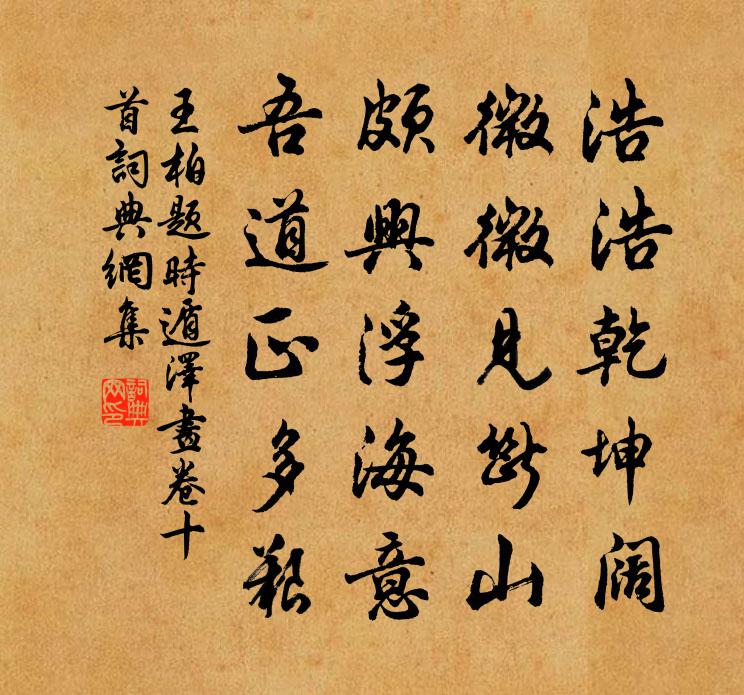 浩浩乾坤闊
微微見斷山
頗興浮海意
吾道正多艱
王柏題時遁澤畫卷十
首詞典網集
詞典
网印